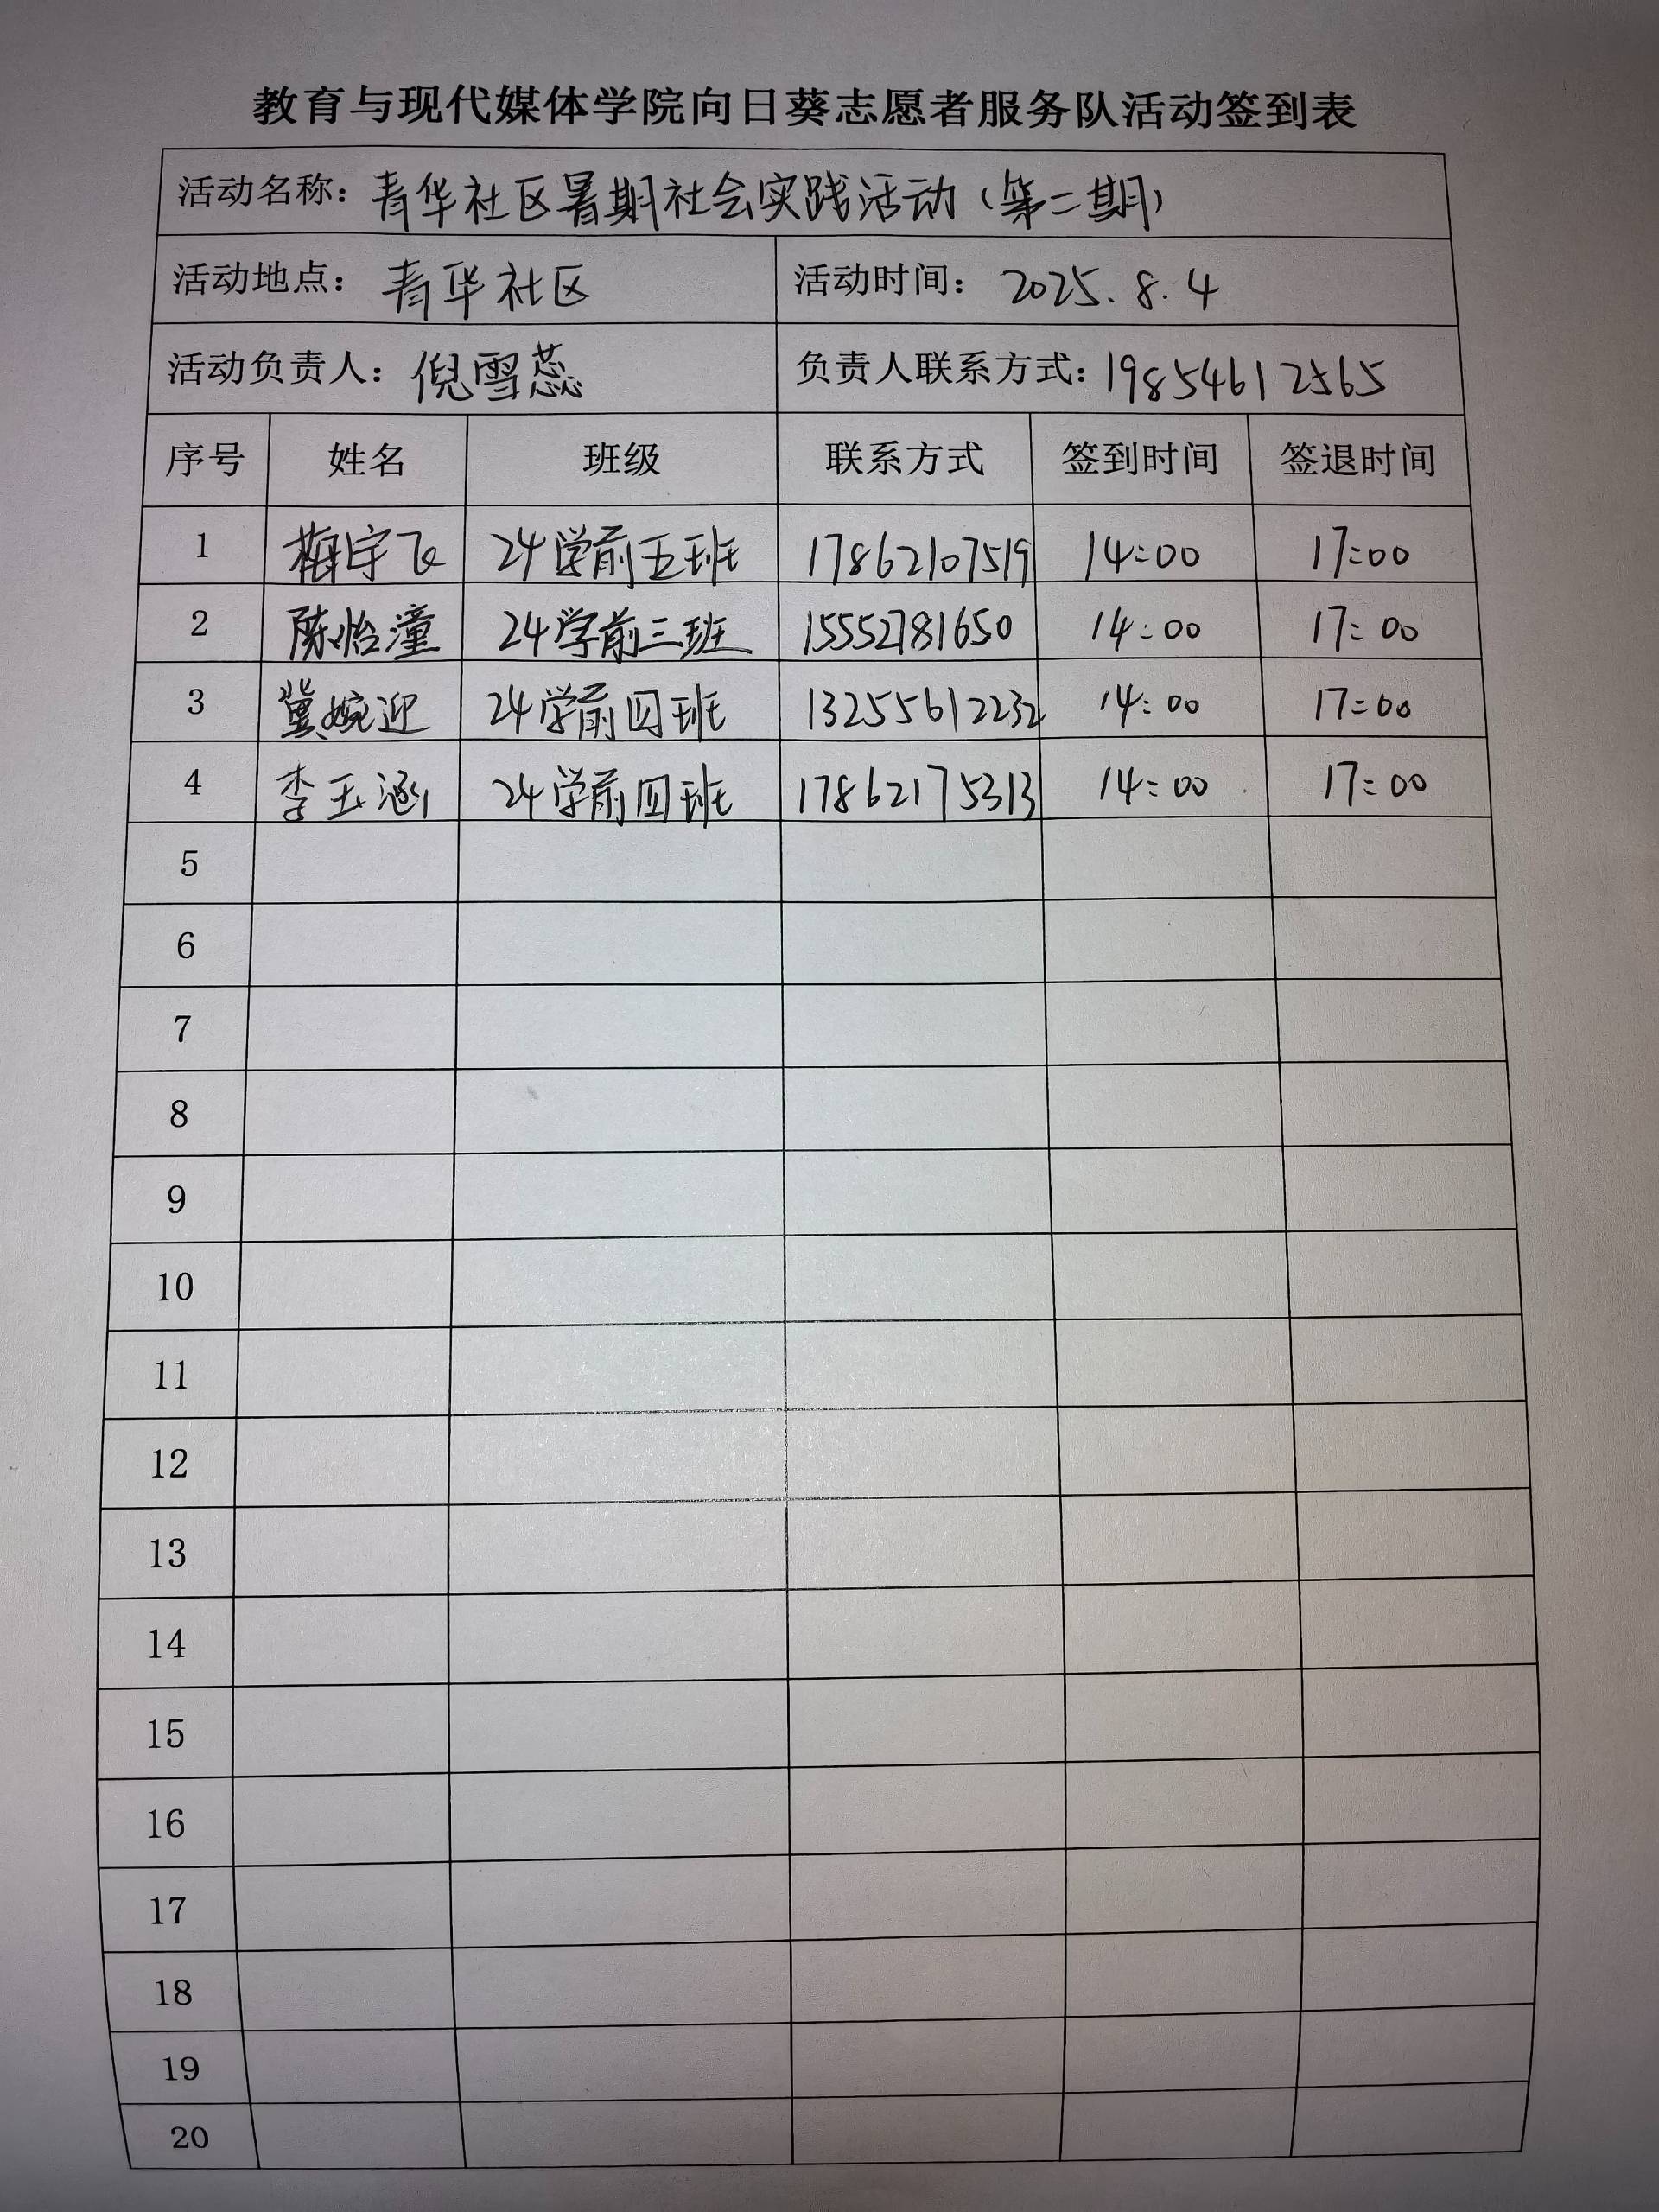 教育与现代媒体学院向日葵志愿者服务队活动签到表
活动名称：青华社区暑期社会实践活动（第二期）
活动地点：青华社区 活动时间：2025.8.4
活动负责人：倪雪蕊 负责人联系方式：19854612565
序号 姓名 班级 联系方式 签到时间 签退时间
1 梅宇飞 24学前五班 17862107519 14:00 17:00
2 陈怡潼 24学前三班 15552781650 14:00 17:00
3 冀婉迎 24学前四班 13255612232 14:00 17:00
4 李玉涵 24学前四班 17862175313 14:00 17:00
5
6
7
8
9
10
11
12
13
14
15
16
17
18
19
20